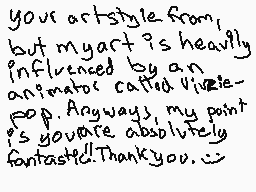 your artstyle from,
but my art is heavily
influenced by an
animator called Vivzie-
pop. Anyways, my point
is you are absolutely
fantastic!! Thank you. :)